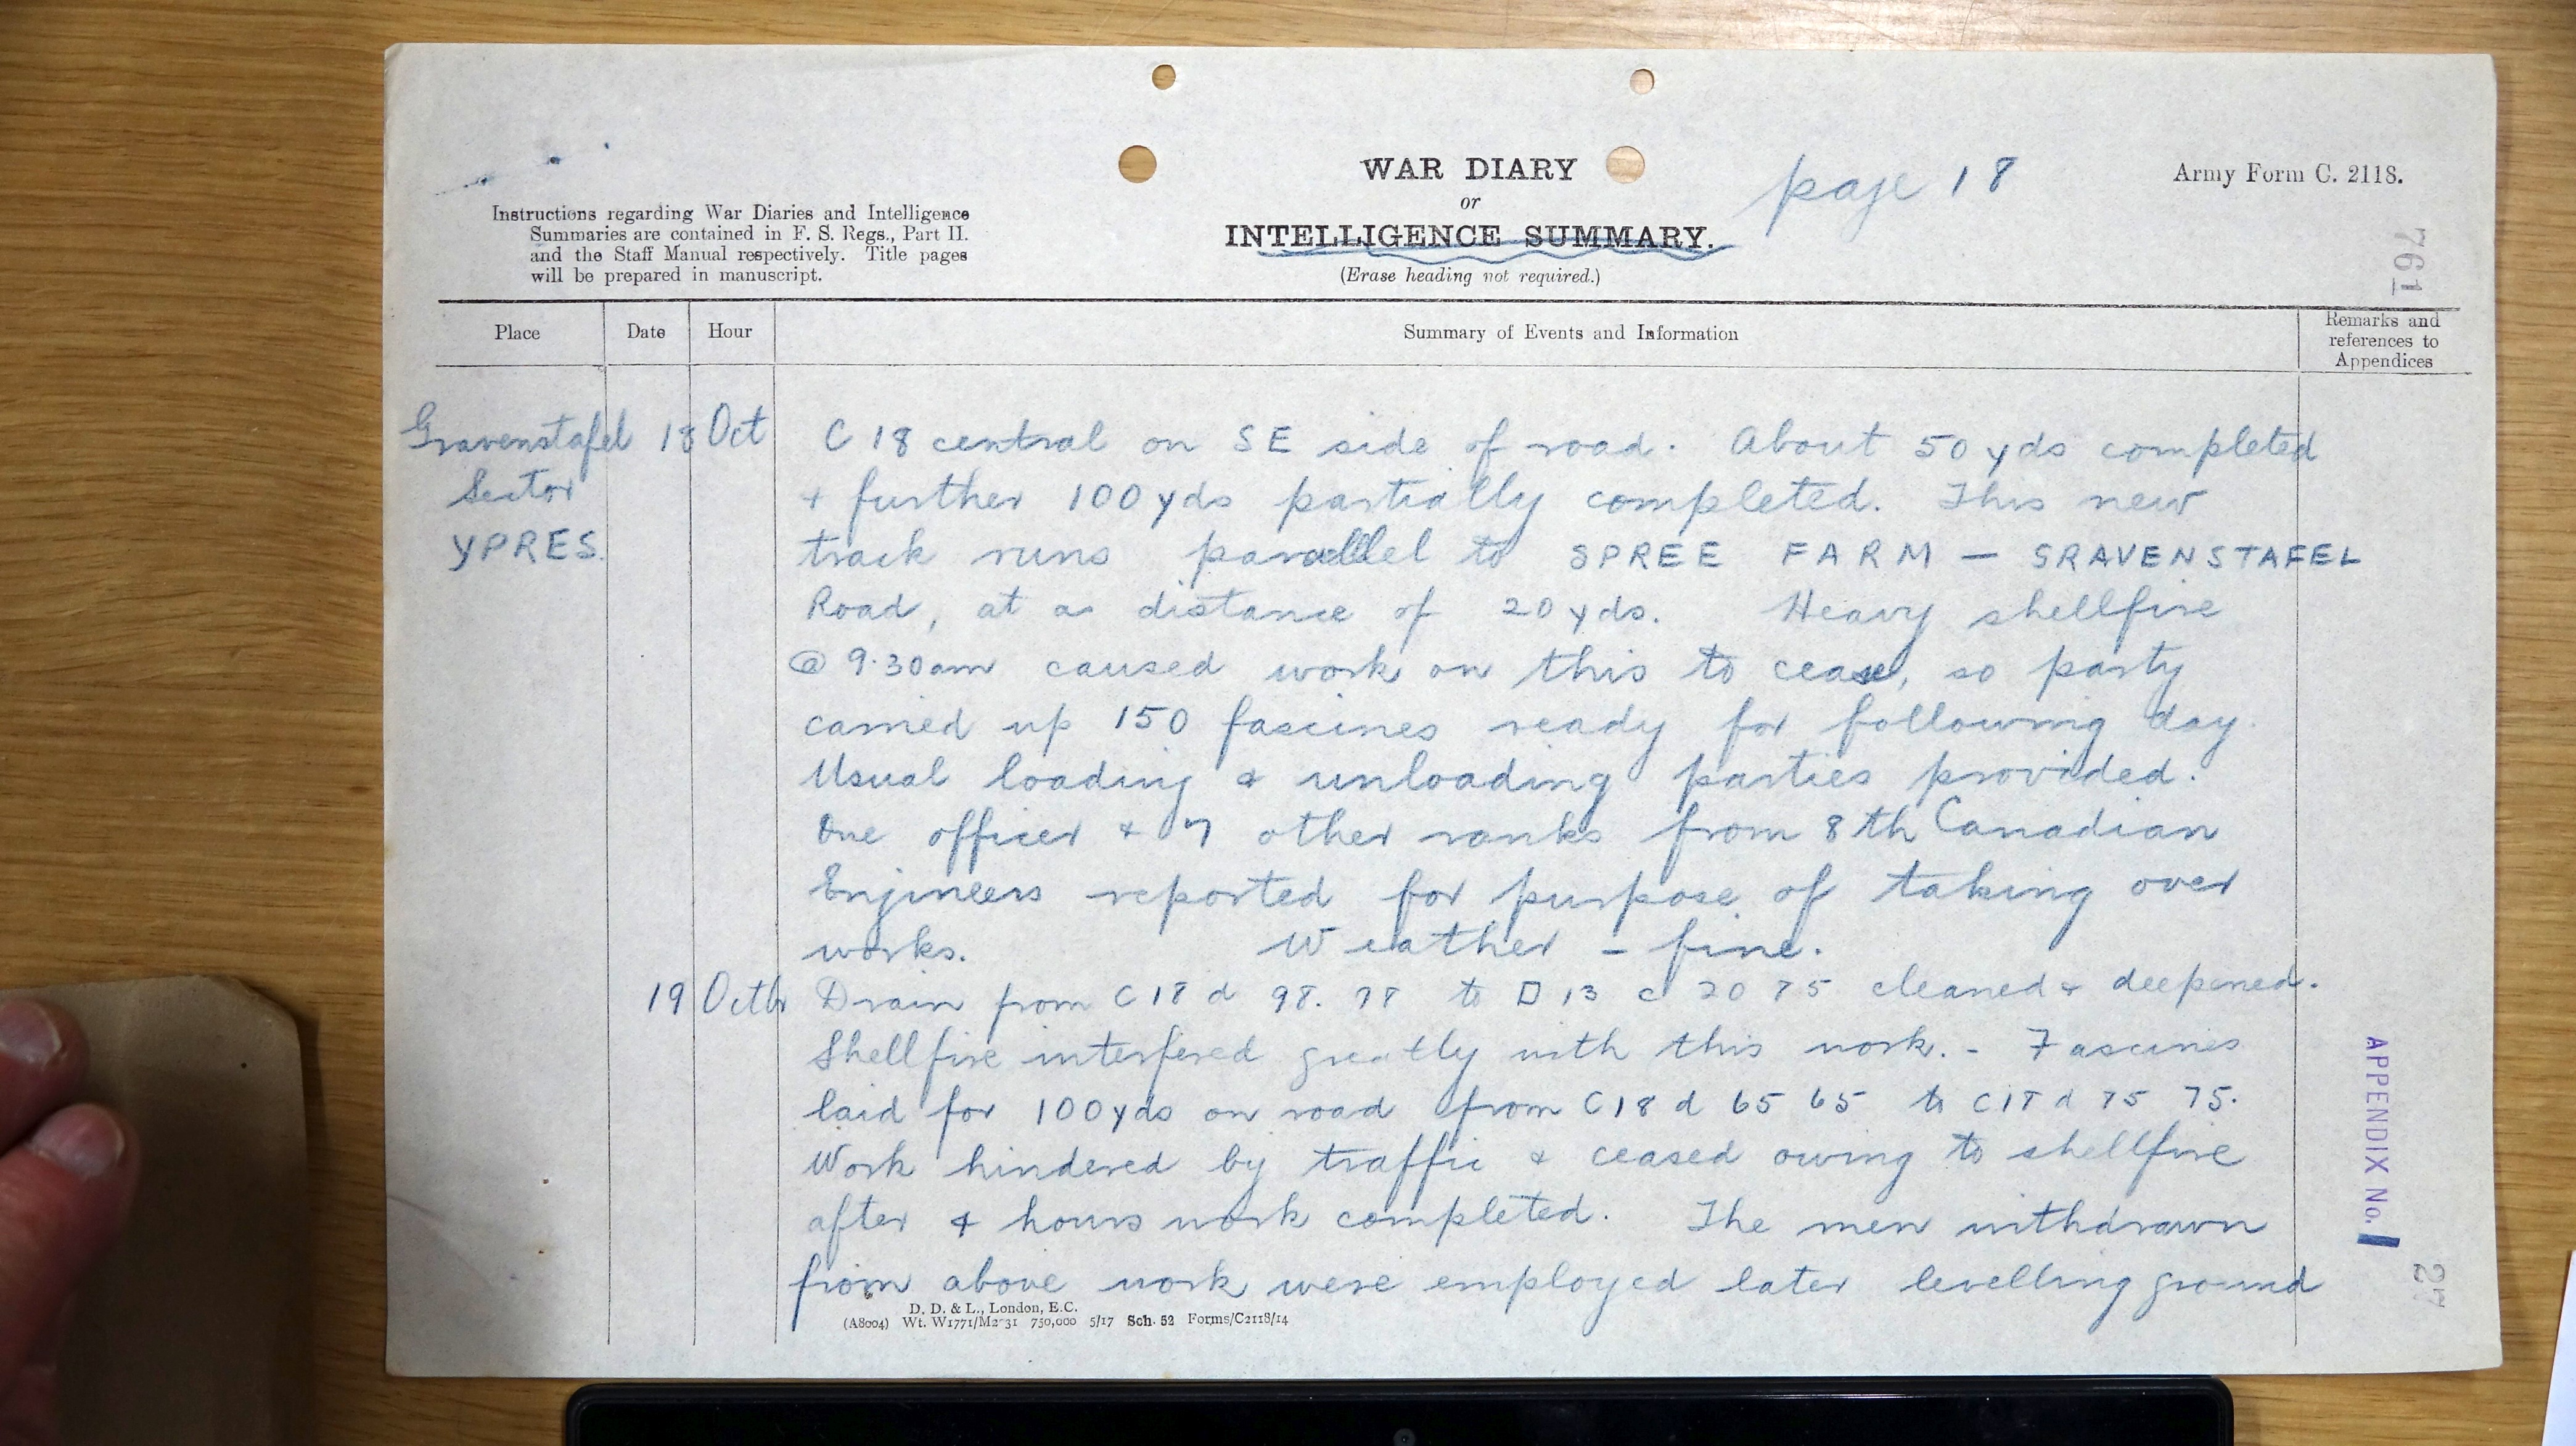 WAR DIARY
or
INTELLIGENCE SUMMARY.
(Erase heading not required.)
page 18
Army Form C. 2118.
Instructions regarding War Diaries and Intelligence
Summaries are contained in F. S. Regs., Part II.
and the Staff Manual respectively. Title pages
will be prepared in manuscript.
761
Place Date Hour Summary of Events and Information Remarks and references to Appendices
Gravenstafel 18 Oct C 18 central on SE side of road. About 50 yds completed
Sector + further 100 yds partially completed. This new
YPRES. track runs parallel to SPREE FARM — GRAVENSTAFEL
Road, at a distance of 20 yds. Heavy shellfire
@ 9.30am caused work on this to cease, so party
carried up 150 fascines ready for following day.
Usual loading & unloading parties provided.
One officer + 7 other ranks from 8th Canadian
Engineers reported for purpose of taking over
works. Weather – fine.
19 Octbr Drain from C 18 d 98. 78 to D 13 c 20 85 cleaned + deepened.
Shellfire interfered greatly with this work. - Fascines
laid for 100 yds on road from C18 d 65 65 to C18 d 75 75.
Work hindered by traffic & ceased owing to shellfire
after 4 hours work completed. The men withdrawn
from above work were employed later levelling ground
APPENDIX No. 1
27
D. D. & L., London, E.C.
(A8004) Wt. W1771/M2 31 750,000 5/17 Sch. 52 Forms/C2118/14